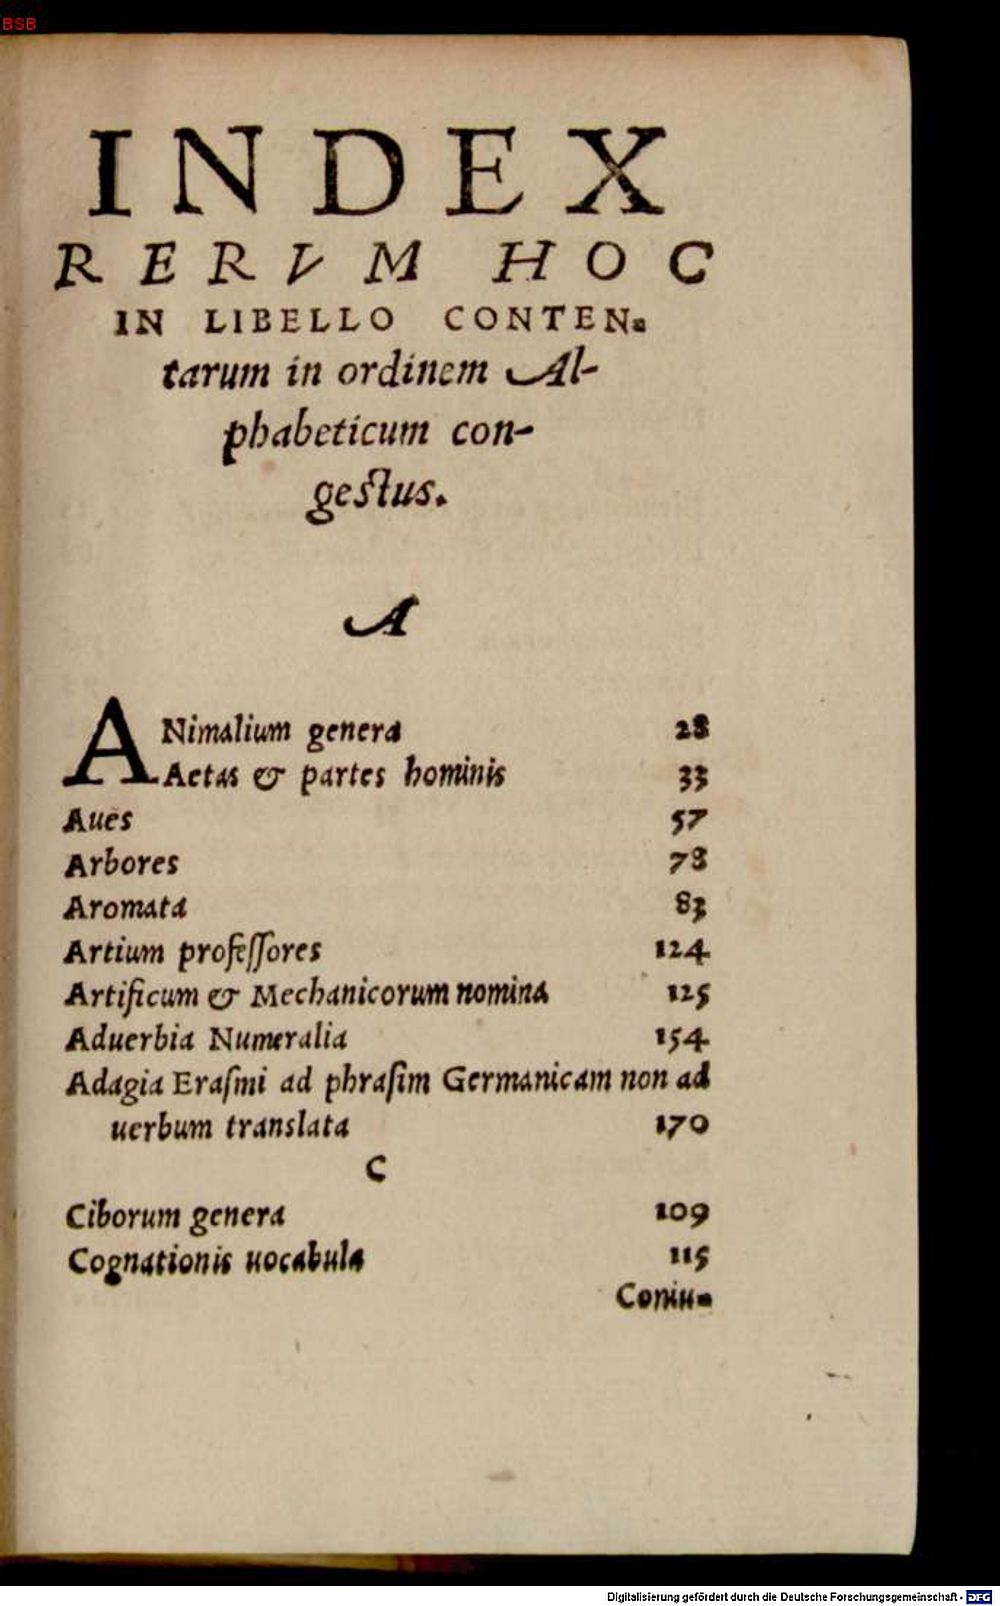 BSB
INDEX
RERVM HOC
IN LIBELLO CONTEN-
tarum in ordinem Al-
phabeticum con-
gestus.
A
ANimalium genera 28
Aetas & partes hominis 33
Aues 57
Arbores 78
Aromata 83
Artium profeſſores 124
Artificum & Mechanicorum nomina 125
Aduerbia Numeralia 154
Adagia Eraſmi ad phraſim Germanicam non ad
uerbum translata 170
C
Ciborum genera 109
Cognationis uocabula 115
Coniu-
Digitalisierung gefördert durch die Deutsche Forschungsgemeinschaft - DFG